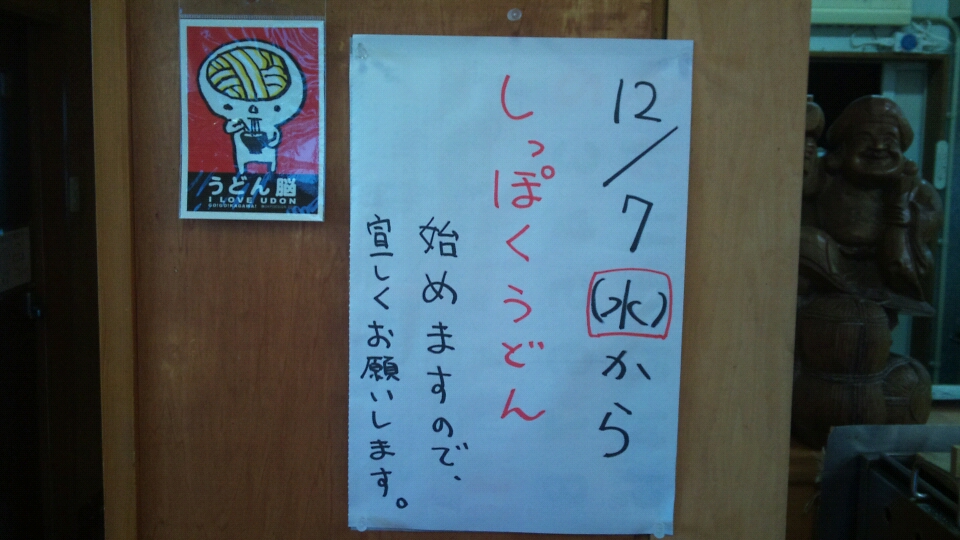 12/7(水)から
しっぽくうどん
始めますので、
宜しくお願いします。
うどん脳
I LOVE UDON